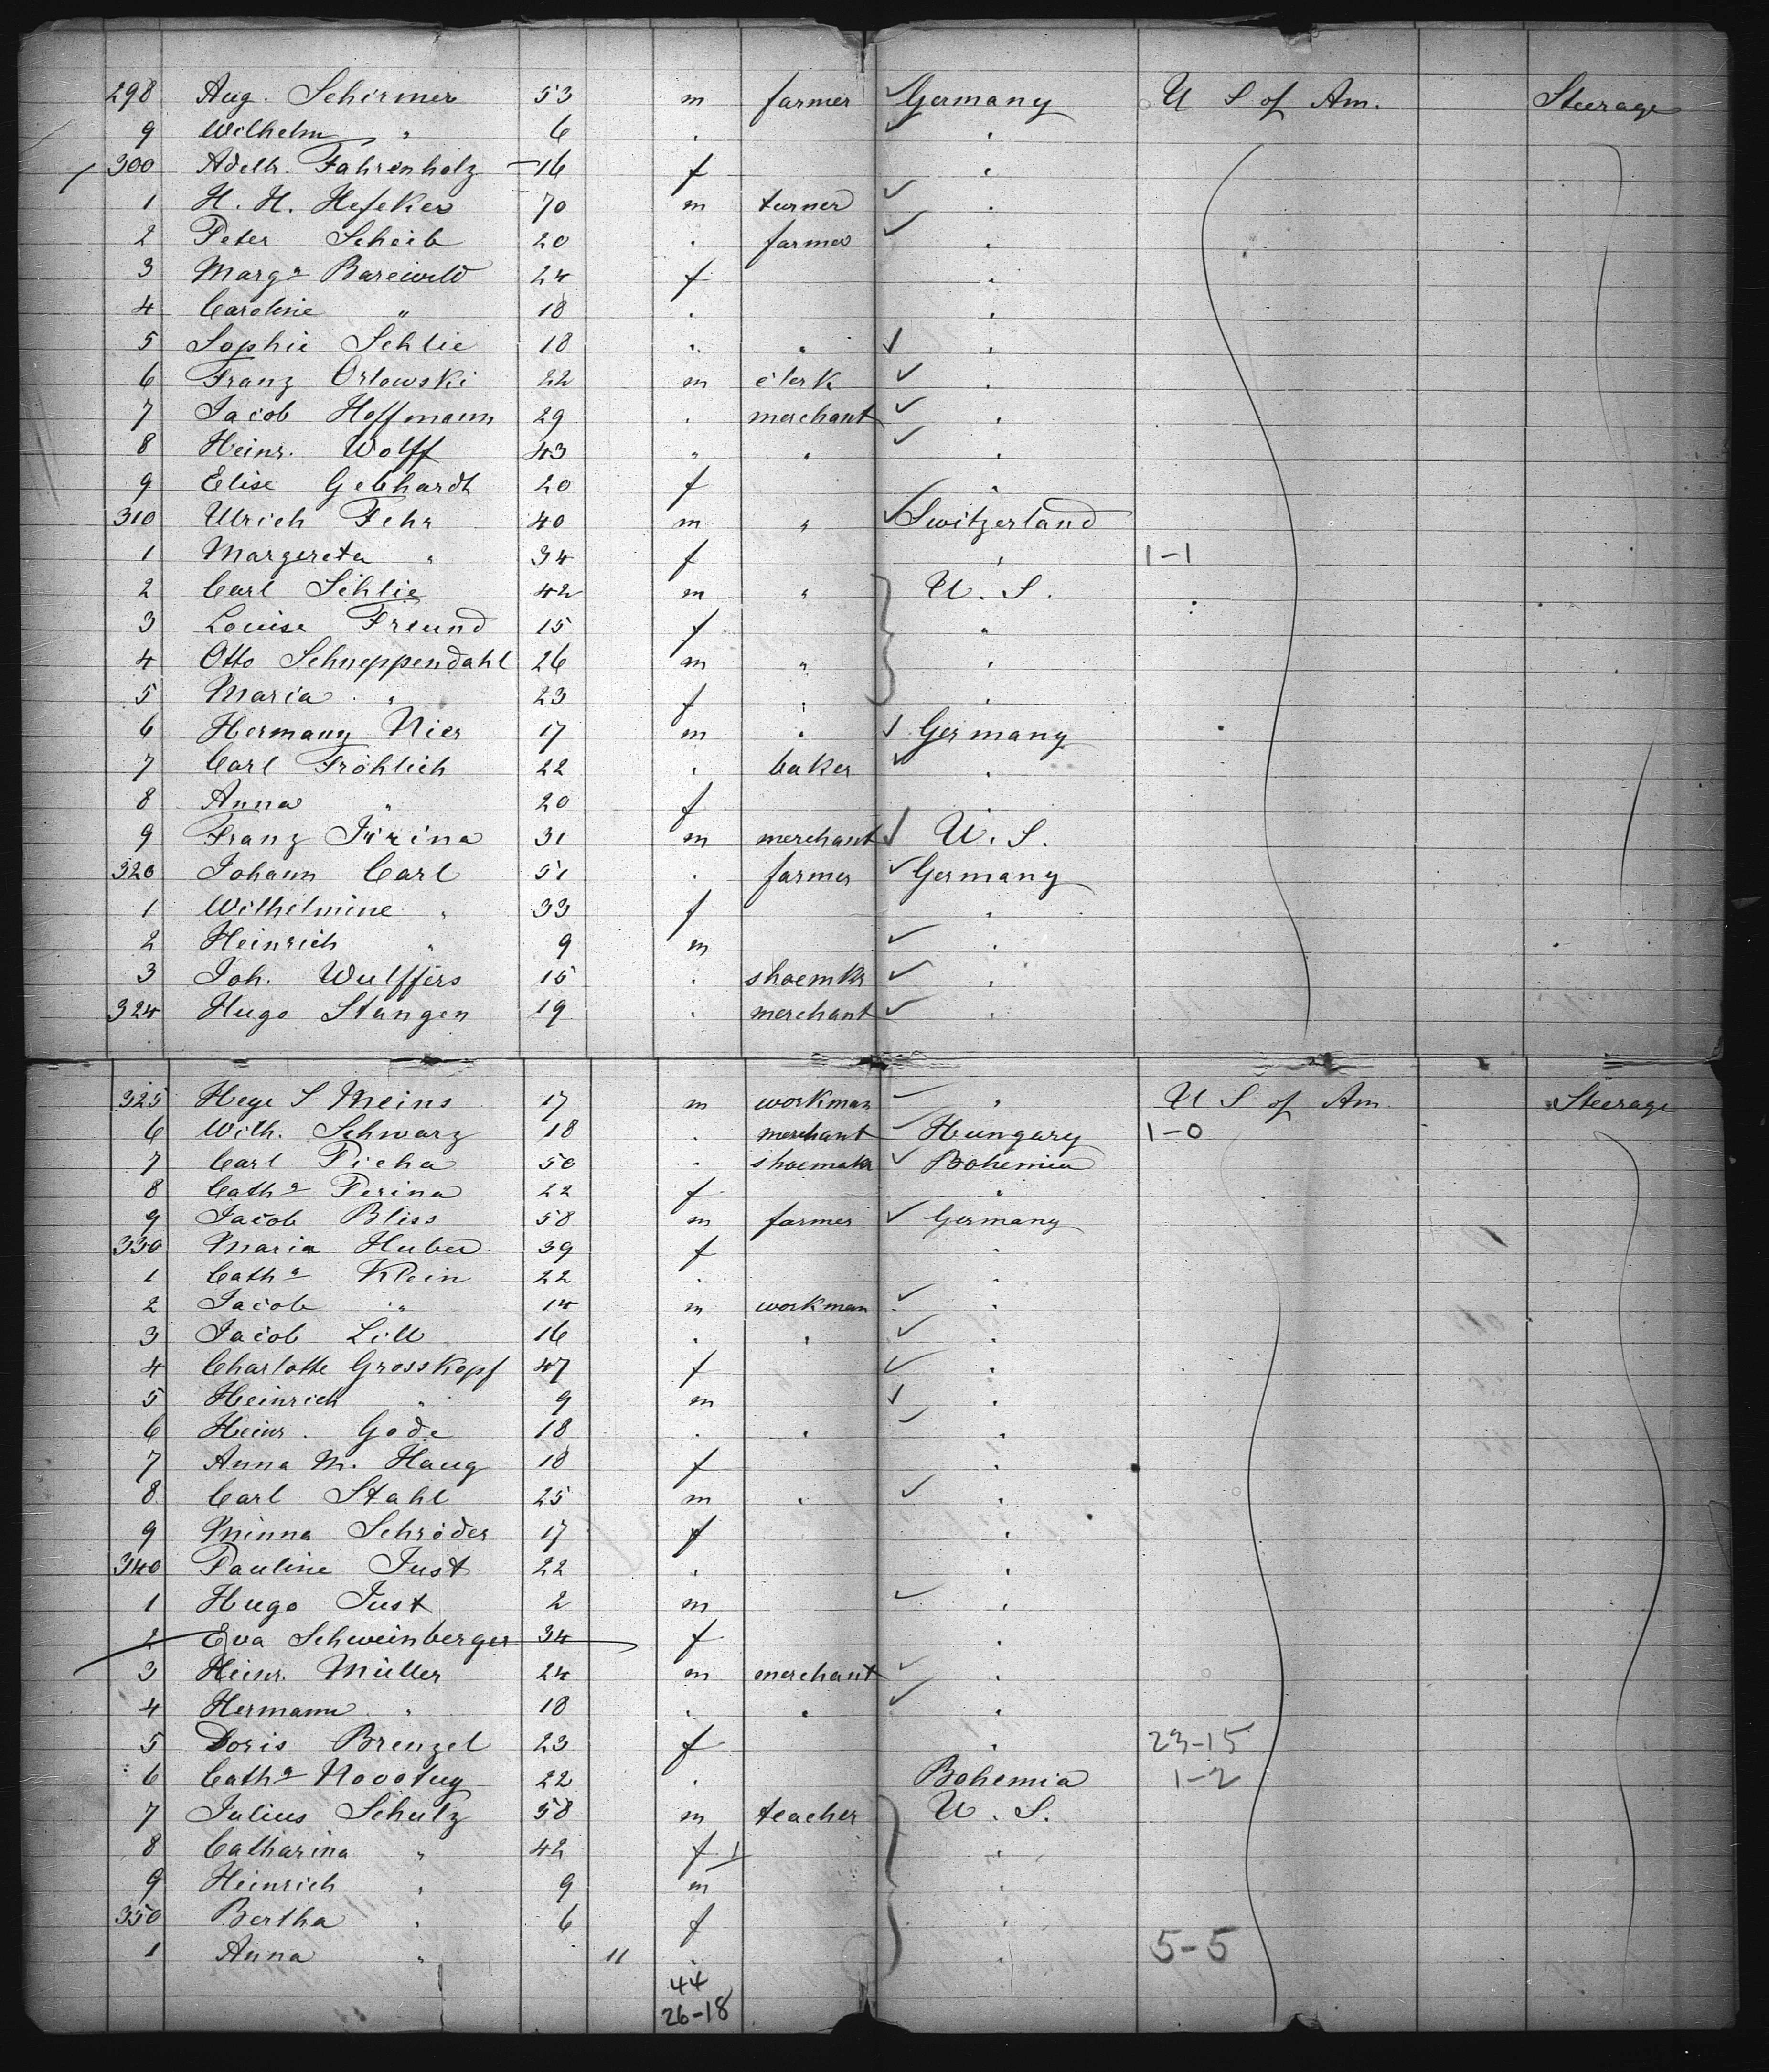 298 Aug. Schirmer 53 m farmer ✓ Germany U S of Am. Steerage
9 Wilhelm " 6 " ✓ "
300 Adelh. Fahrenholz 16 f "
1 H. H. Hefeker 70 m turner ✓ "
2 Peter Scheib 20 " farmer ✓ "
3 Marga Barewild 24 f "
4 Caroline " 18 " "
5 Sophie Schlie 18 " " ✓ "
6 Franz Orlowski 22 m clerk ✓ "
7 Jacob Hoffmann 29 " merchant ✓ "
8 Heinr. Wolff 43 " " ✓ "
9 Elise Gebhardt 20 f "
310 Ulrich Fehr 40 m " ✓ Switzerland
1 Margereta " 34 f " 1-1
2 Carl Schlie 42 m " U. S.
3 Louise Freund 15 f "
4 Otto Schneppendahl 26 m " "
5 Maria " 23 f " "
6 Hermann Nier 17 m " ✓ Germany
7 Carl Fröhlich 22 " baker ✓ "
8 Anna " 20 f "
9 Franz Jürina 31 m merchant ✓ U. S.
320 Johann Carl 51 " farmer ✓ Germany
1 Wilhelmine " 33 f "
2 Heinrich " 9 m ✓ "
3 Joh. Wulffers 15 " shoemkr ✓ "
324 Hugo Stangen 19 " merchant ✓ "
325 Hege S Meins 17 m workman ✓ " U S of Am. Steerage
6 Wilh. Schwarz 18 " merchant ✓ Hungary 1-0
7 Carl Picha 50 " shoemakr ✓ Bohemia
8 Catha Perina 22 f "
9 Jacob Bliss 58 m farmer ✓ Germany
330 Maria Huber 39 f "
1 Catha Klein 22 " "
2 Jacob " 14 m workman ✓ "
3 Jacob Lill 16 " " ✓ "
4 Charlotte Grosskopf 47 f ✓ "
5 Heinrich " 9 m ✓ "
6 Heinr. Gode 18 " " ✓ "
7 Anna M. Haug 18 f "
8 Carl Stahl 25 m " ✓ "
9 Minna Schröder 17 f "
340 Pauline Just 22 " "
1 Hugo Just 2 m ✓ "
2 Eva Schweinberger 34 f "
3 Heinr. Müller 24 m merchant ✓ "
4 Hermann " 18 " " ✓ "
5 Doris Brenzel 23 f " 23-15
6 Catha Novotny 22 " Bohemia 1-2
7 Julius Schulz 58 m teacher U. S.
8 Catharina " 42 f 1 "
9 Heinrich " 9 m "
350 Bertha " 6 f "
1 Anna " 11 " " 5-5
44
26-18